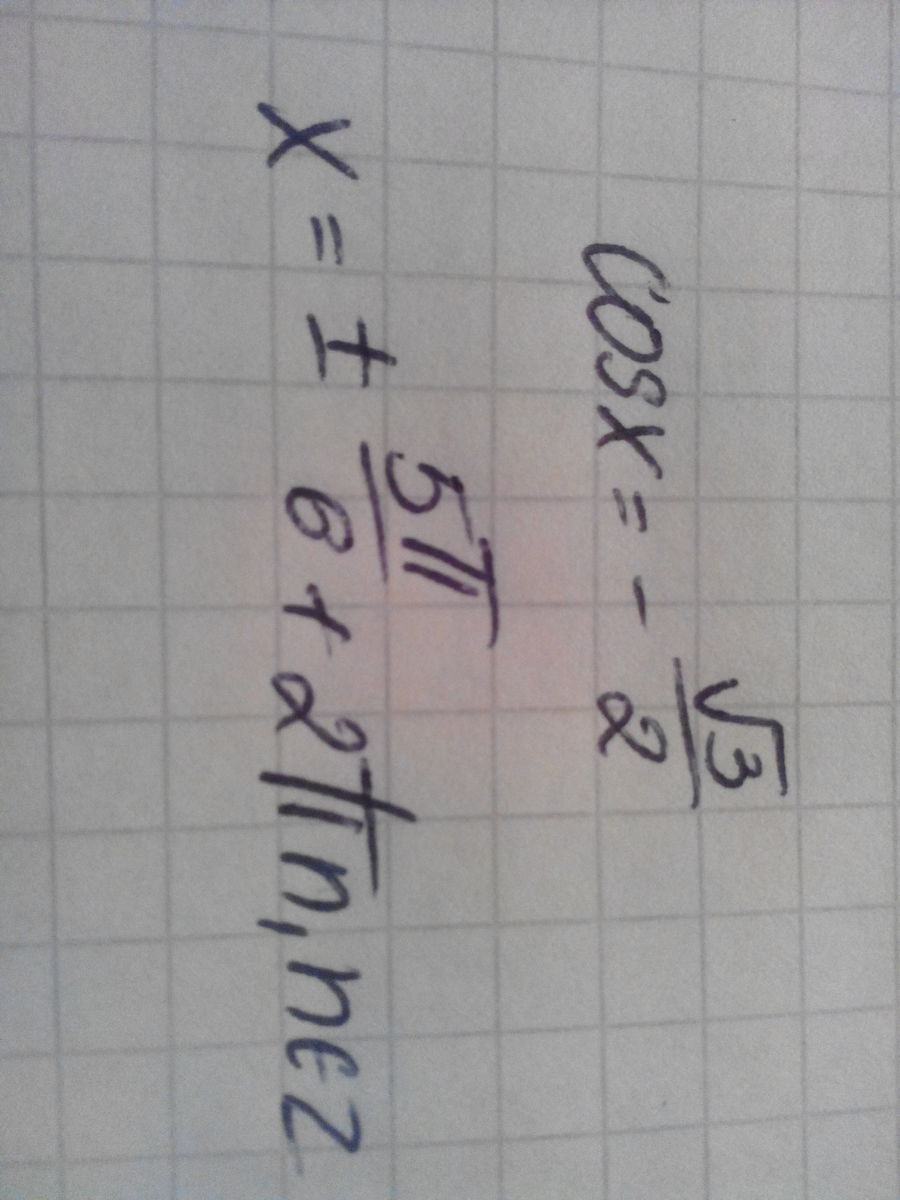 cosx = - √3/2
x = ± 5π/6 + 2πn, n∈Z